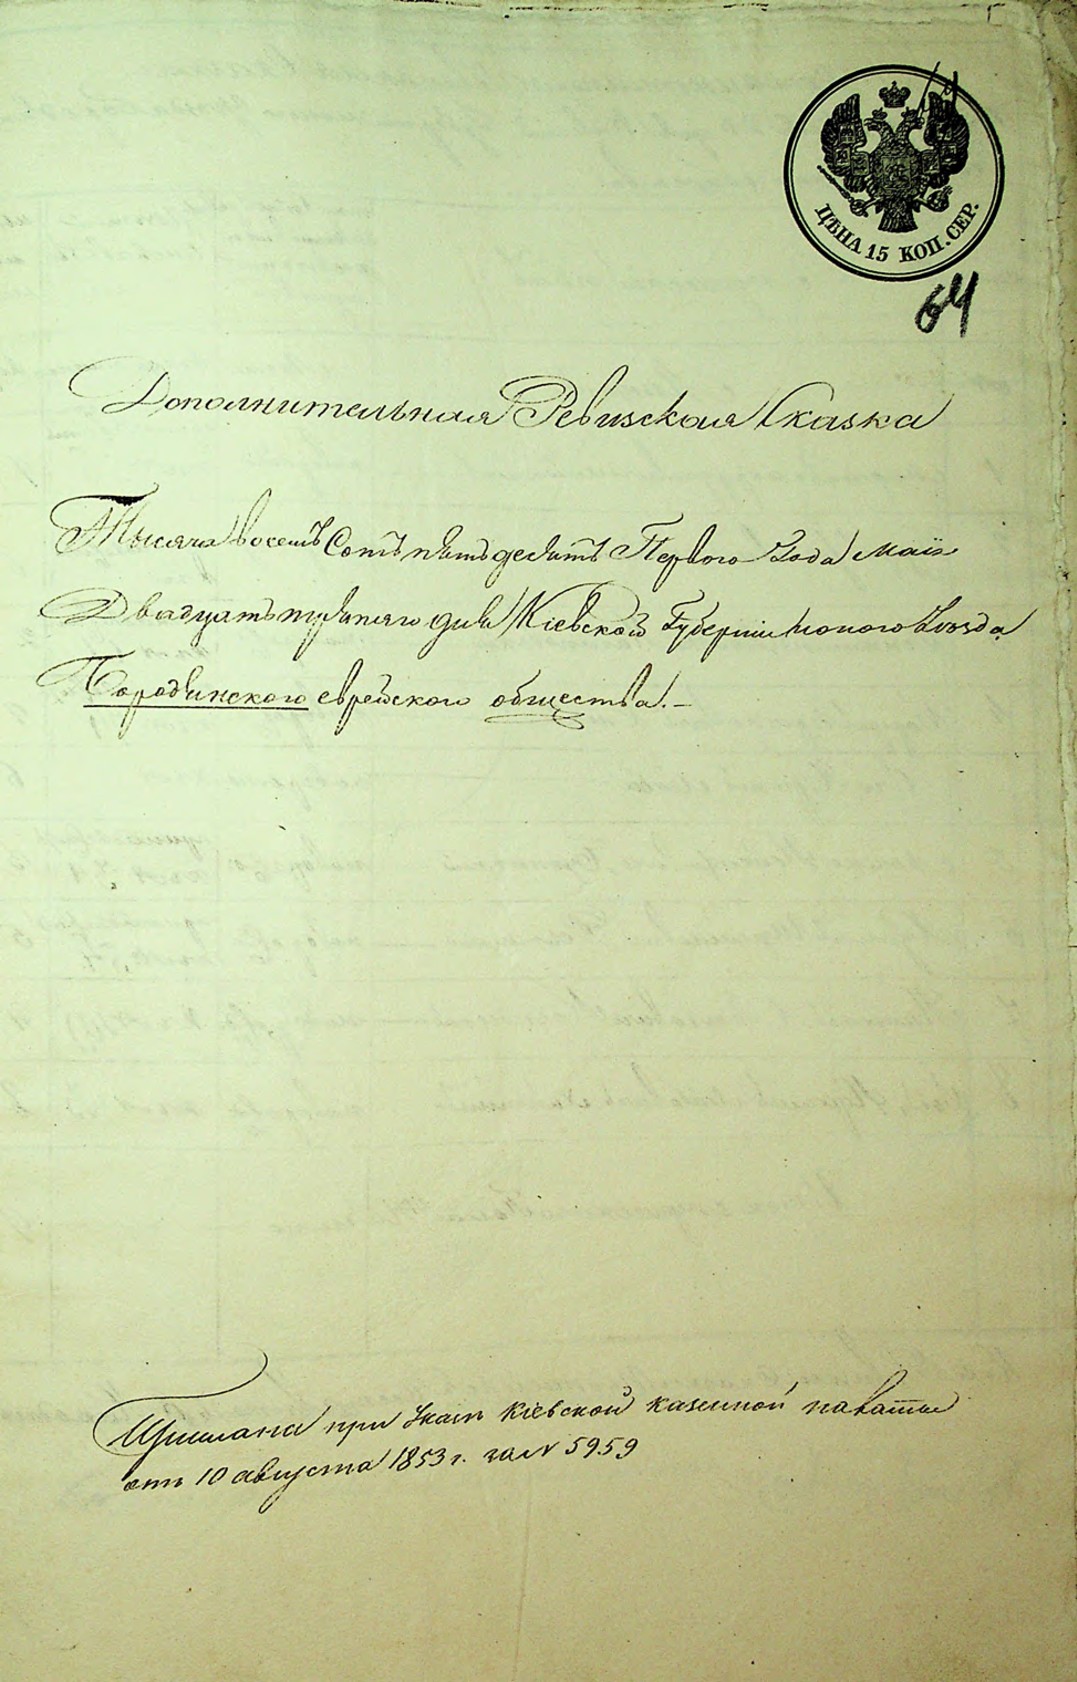 ЦѢНА 15 КОП. СЕР.
64
Дополнительная Ревизская Сказка
Тысяча восемъ Сотъ пятьдесятъ Перваго Года мая
Двадцать третьяго дня Кіевской Губерніи уѣзда
еврейского общества.
Прислана при Указѣ Кіевской казенной палаты
отъ 10 августа 1853 г. за № 5959